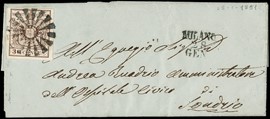 MILANO
GEN
All' Egregio Sig
Andrea Quadrio amministratore
dell' Ospitale Civico
di
Sondrio